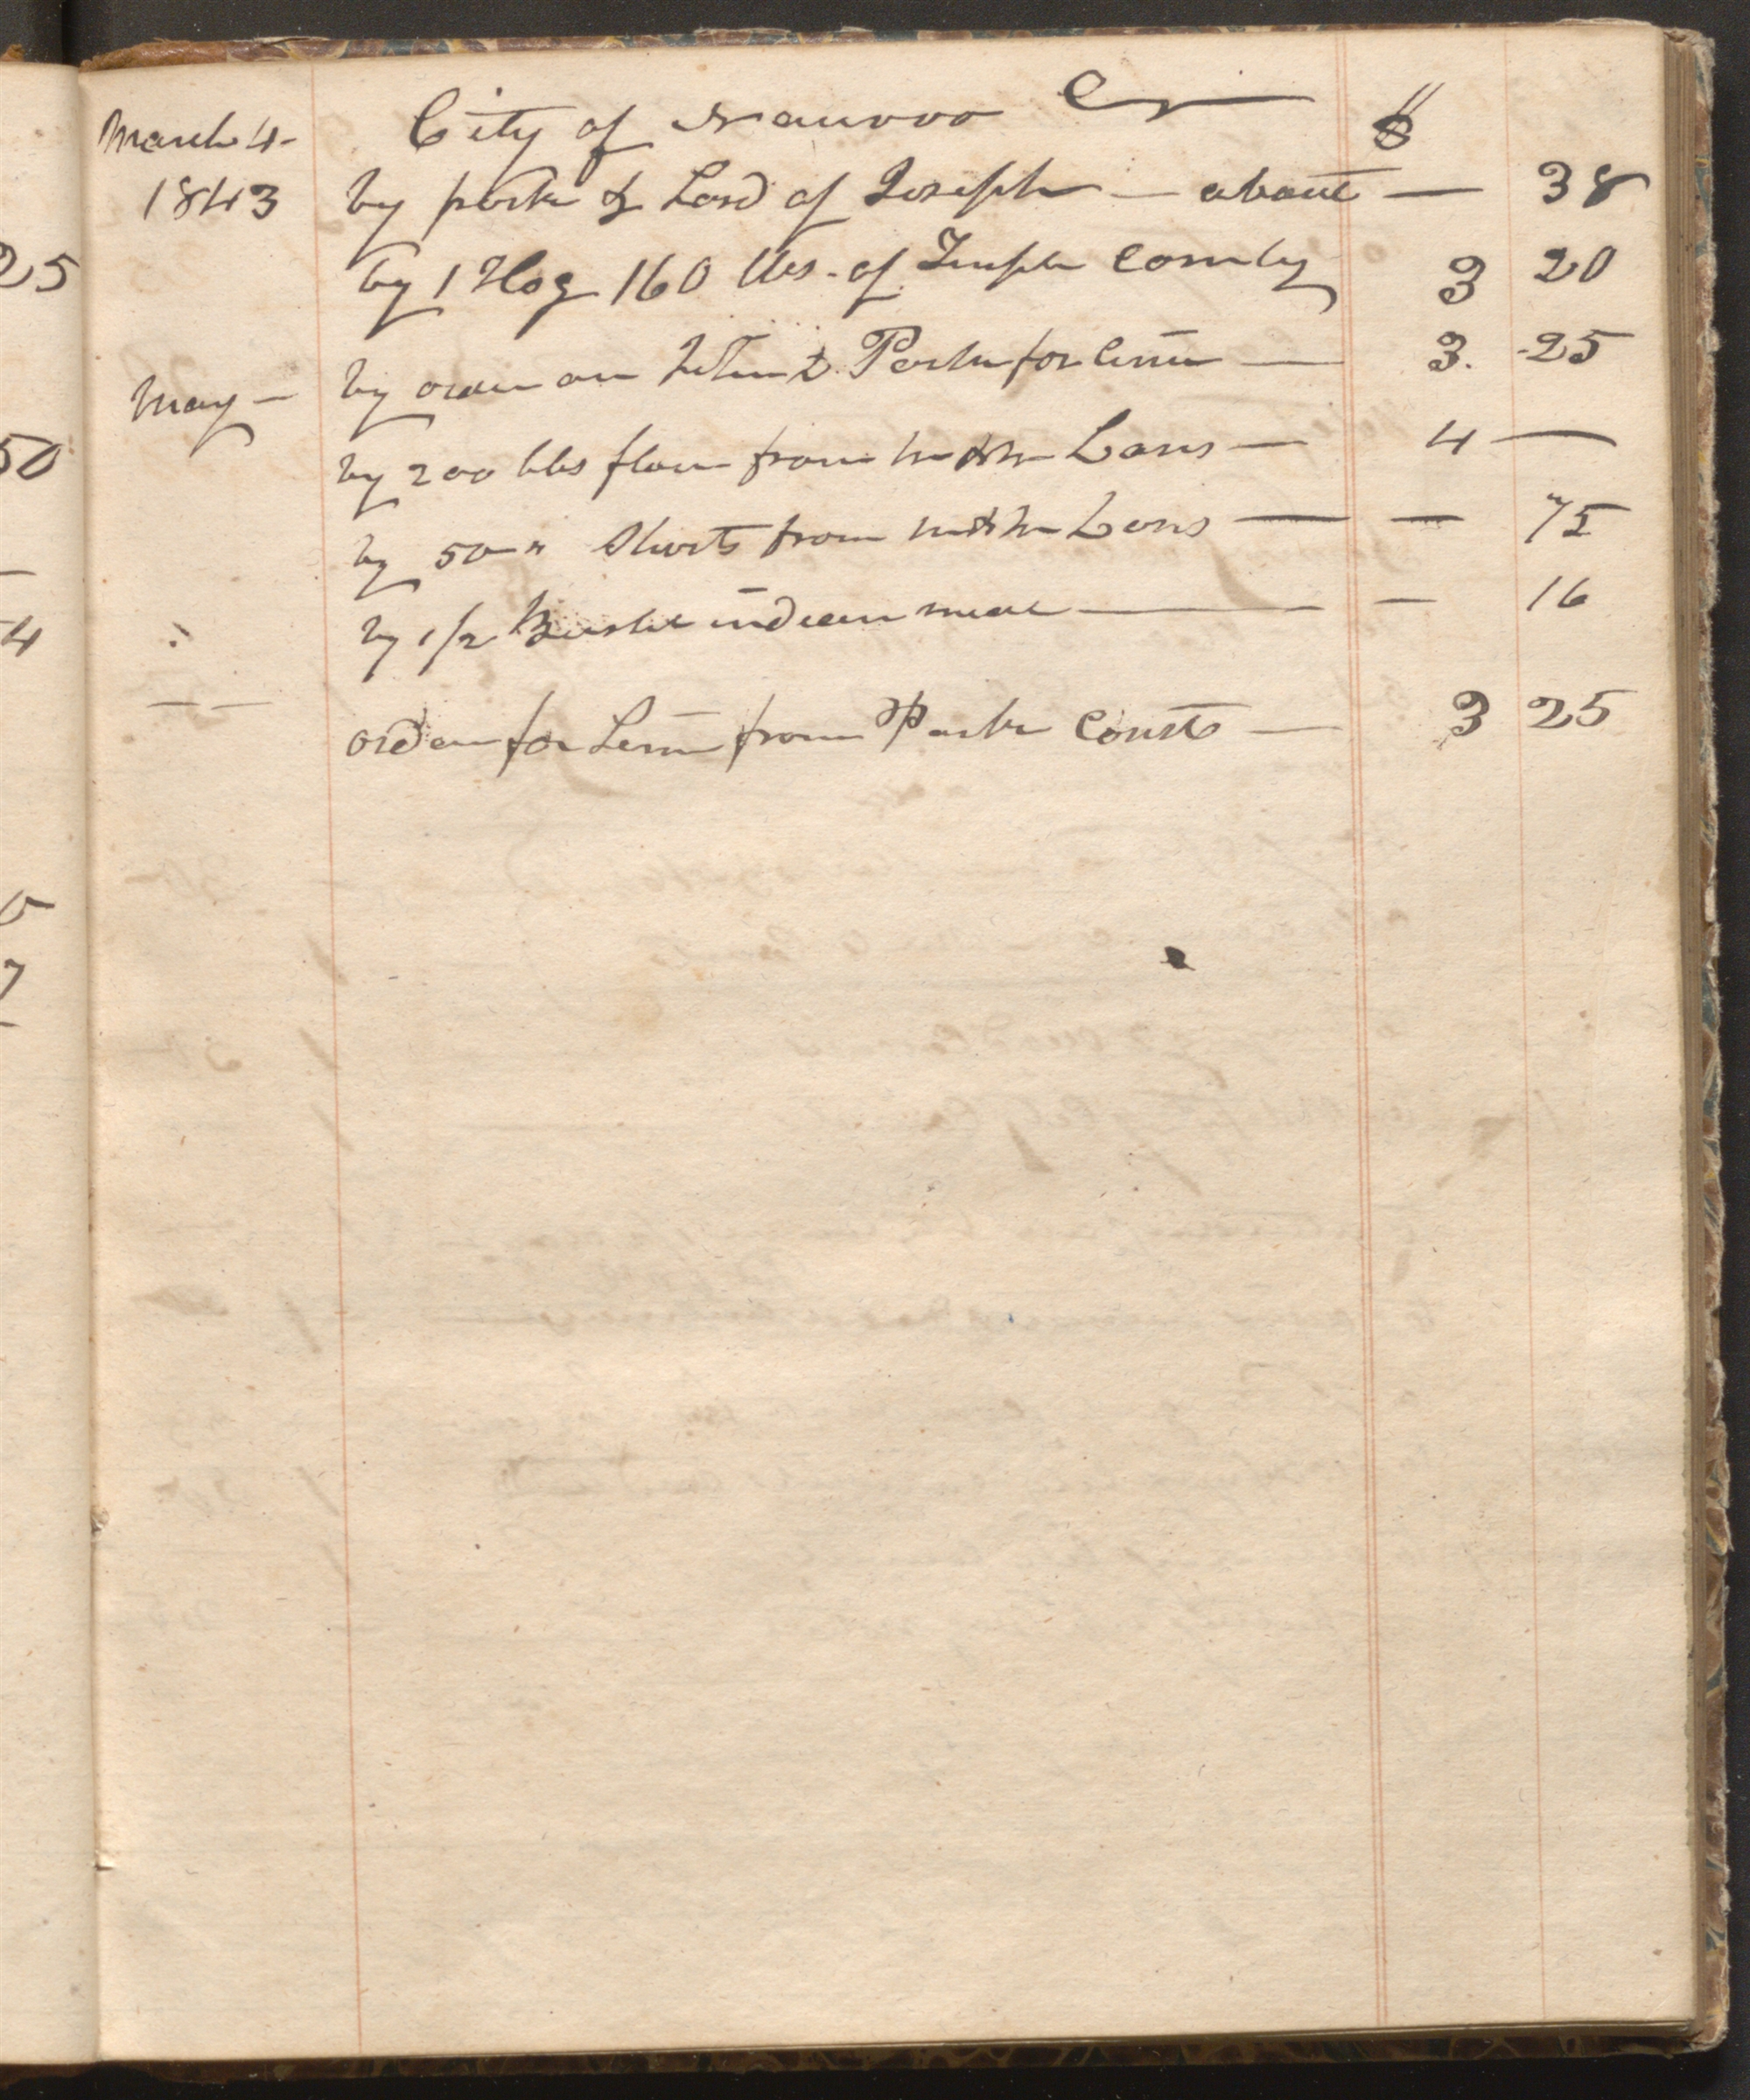 March 4- City of Nauvoo Cr $
1843 by pork & Lard of Joseph — about — 38
by 1 Hog 160 lbs. of Joseph Comby 3 20
May — by order on Parker for — 3. 25
by 200 lbs flour from Laws — 4 —
by 50 " Shorts from Laws — — 75
by 1/2 Bushel indian meal — — 16
— — order for from Parker — 3 25
25
50
4
7